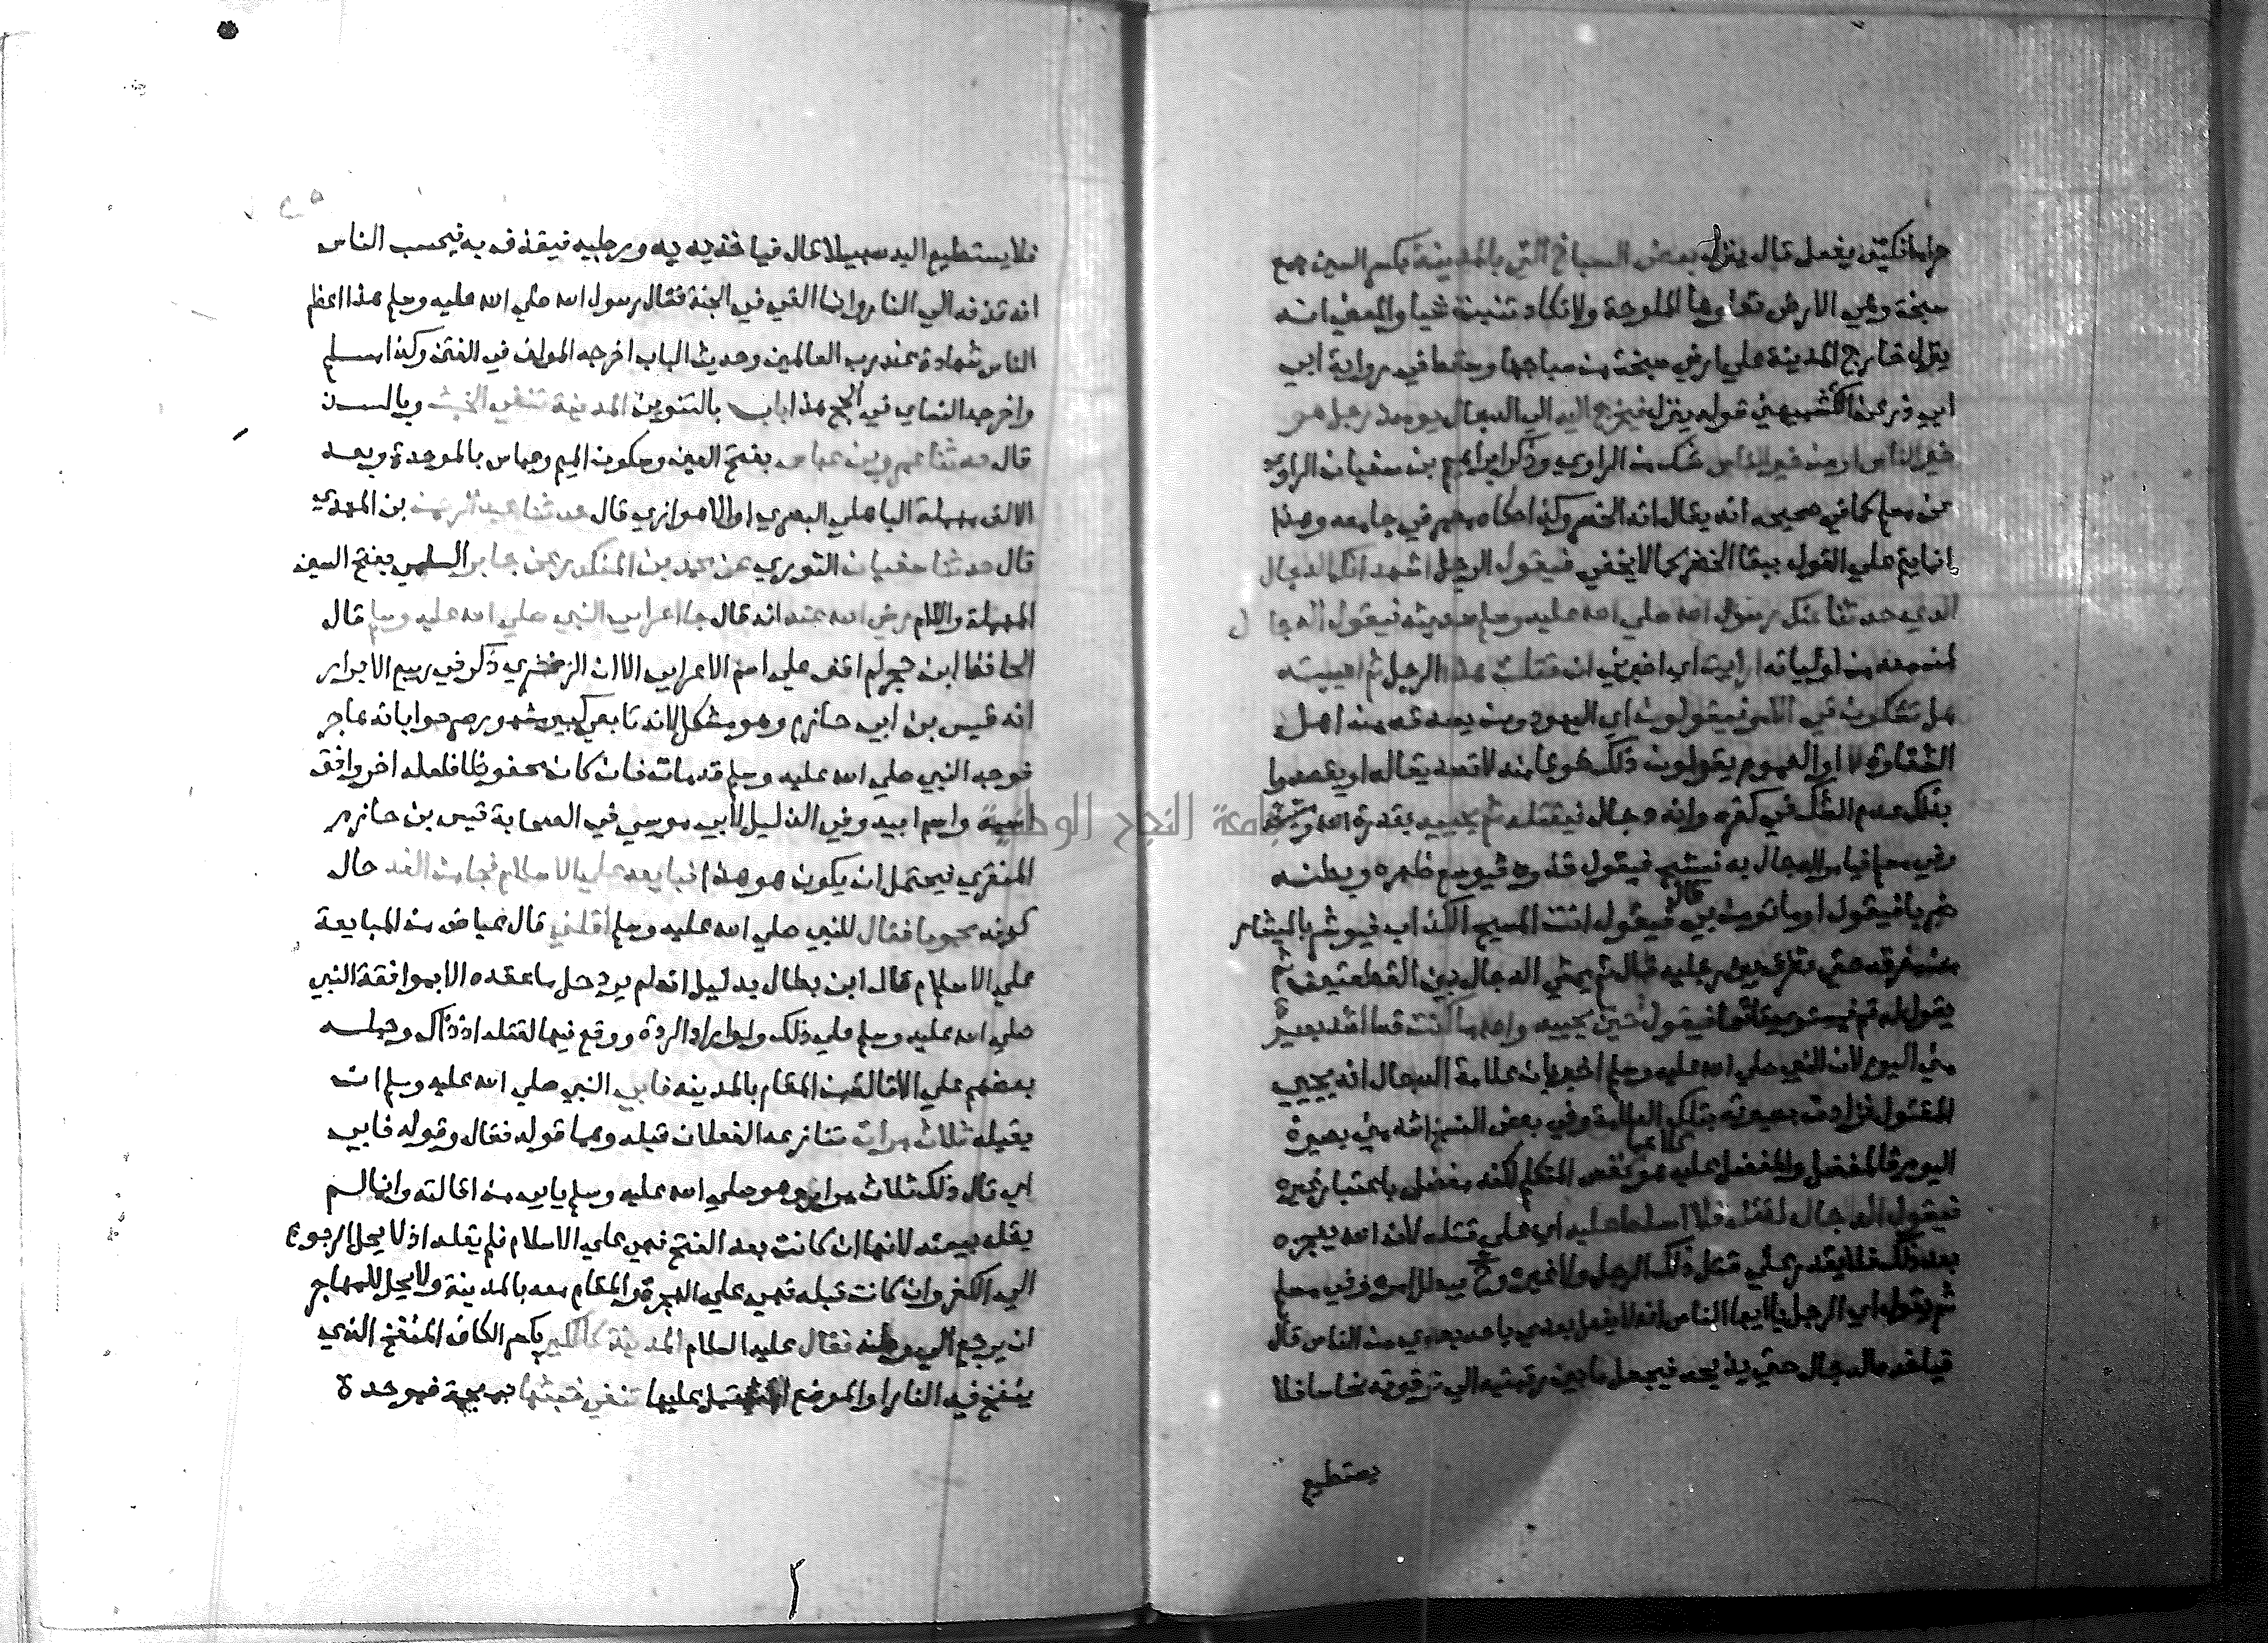 حراما فكيف يفعل قال ينزل بعض السباخ التي بالمدينة بكسر السين جمع
سبخة وهي الارض تعلوها الملوحة ولا تكاد تنبت شيا والمعني انه
ينزل خارج المدينة علي ارض سبخة من سباخها وسقط في رواية ابي
ابي ذر عن الكشميهني قوله ينزل فيخرج اليه الي الدجال يوميذ رجل هو
خير الناس او من خير الناس شك من الراوي وذكر ابراهيم بن سفيان الراوي
عن مسلم كما في صحيحه انه يقال انه الخضر وكذا حكاه معمر في جامعه وهذا
انما يتم علي القول ببقا الخضر كما لا يخفي فيقول الرجل اشهد انك الدجال
الذي حدثنا عنك رسول الله صلي الله عليه وسلم حديثه فيقول الدجال
لمن معه من اوليائه ارايت اي اخبرني ان قتلت هذا الرجل ثم احييته
هل تشكون في الامر فيقولون اي اليهود ومن يصدقه من اهل
الشقاوة لا او العموم يقولون ذلك خوفا منه لا تصديقا له او يقصدوا
بذلك عدم الشك في كفره وانه دجال فيقتله ثم يحييه بقدرة الله ومشيئته
وفي مسلم فيامر الدجال به فيشبح فيقول خذوه فيوسع ظهره وبطنه
ضربا فيقول اوما تومن بي قال فيقول انت المسيح الكذاب فيوشر بالميشار
من مفرقه حتي يفرق بين رجليه قال ثم يمشي الدجال بين القطعتين ثم
يقول له قم فيستوي قائما فيقول حين يحييه والله ما كنت قط اشد بصيرة
مني اليوم لان النبي صلي الله عليه وسلم اخبر بان علامة الدجال انه يحيي
المقتول فزادت بصيرته بتلك العلامة وفي بعض النسخ اشد مني بصيرة
اليوم فالمفضل والمفضل عليه كلاهما هو نفس المتكلم لكنه مفضل باعتبار غيره
فيقول الدجال اقتله فلا اسلط عليه اي علي قتله لان الله يعجزه
بعد ذلك فلا يقدر علي قتل ذلك الرجل ولا غيره وح يبطل امره وفي مسلم
ثم يقول اي الرجل يا ايها الناس انه لا يفعل بعدي باحد من الناس قال
فياخذه الدجال حتي يذبحه فيجعل ما بين رقبته الي ترقوته نحاسا فلا
يستطيع
فلا يستطيع اليه سبيلا قال فياخذ بيديه ورجليه فيقذف به فيحسب الناس
انه قذفه الي النار وانما القي في الجنة فقال رسول الله صلي الله عليه وسلم هذا اعظم
الناس شهادة عند رب العالمين وحديث الباب اخرجه المولف في الفتن وكذا مسلم
واخرجه النساي في الحج هذا باب بالتنوين المدينة تنفي الخبث وبالسند
قال حدثنا عمرو بن عباس بفتح العين وسكون الميم وعباس بالموحدة وبعد
الالف مهملة الباهلي البصري او الاهوازي قال حدثنا عبد الرحمن بن المهدي
قال حدثنا سفيان الثوري عن محمد بن المنكدر عن جابر السلمي بفتح السين
المهملة واللام رضي الله عنه انه قال جا اعرابي النبي صلي الله عليه وسلم قال
الحافظ ابن حجر لم اقف علي اسم الاعرابي الا ان الزمخشري ذكر في ربيع الابرار
انه قيس بن ابي حازم وهو مشكل لانه تابعي كبير مشهور صرحوا بانه هاجر
فوجد النبي صلي الله عليه وسلم قد مات فان كان محفوظا فلعله اخر وافق
اسمه واسم ابيه وفي الذيل لابي موسي في الصحابة قيس بن حازم
المنقري فيحتمل ان يكون هو هذا فبايعه علي الاسلام فجا من الغد حال
كونه محموما فقال للنبي صلي الله عليه وسلم اقلني قال عياض من المبايعة
علي الاسلام قال ابن بطال بدليل انه لم يرد حل ما عقده الا بموافقة النبي
صلي الله عليه وسلم علي ذلك ولو اراد الردة ووقع فيها لقتله اذ ذاك وحمله
بعضهم علي الاقالة من المقام بالمدينه فابي النبي صلي الله عليه وسلم ان
يقيله ثلاث مرات تنازعه الفعلان قبله وهما قوله فقال وقوله فابي
اي قال ذلك ثلاث مرار وهو صلي الله عليه وسلم يابي من اقالته وانما لم
يقله بيعته لانها ان كانت بعد الفتح فهي علي الاسلام فلم يقله اذ لا يحل الرجوع
الي الكفر وان كانت قبله فهي علي الهجرة والمقام معه بالمدينة ولا يحل للمهاجر
ان يرجع الي وطنه فقال عليه السلام المدينة كالكير بكسر الكاف المنفخ الذي
ينفخ فيه النار او الموضع المشتمل عليها تنفي خبثها بمعجمة فموحدة
جامعة النجاح الوطنية